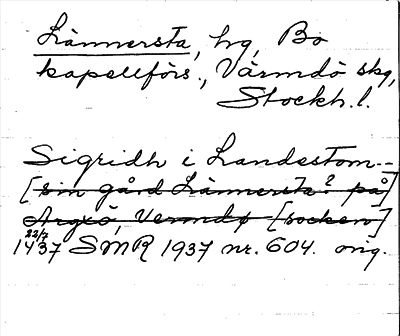 Lännersta, hg, Bo
kapellförs., Värmdö skg,
Stockh. l.
Sigridh i Landestom--
[sin gård Lännersta? på]
Argnö, Vermdø [socken]
22/7
1437 SMR 1937 nr. 604. orig.